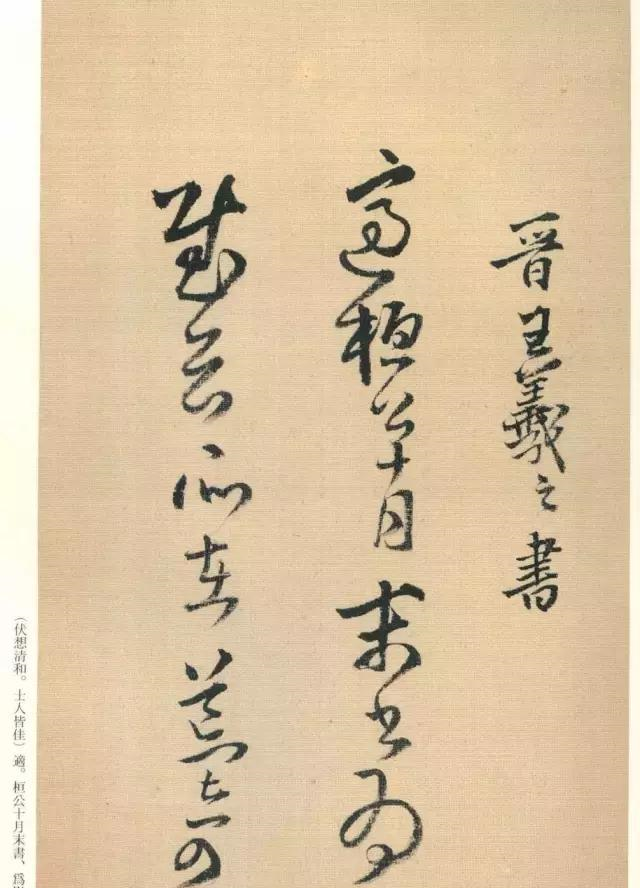 晋王羲之書
適桓公十月末書為
慰云所在荒甚可
（伏想清和。士人皆佳）適。桓公十月末書、爲